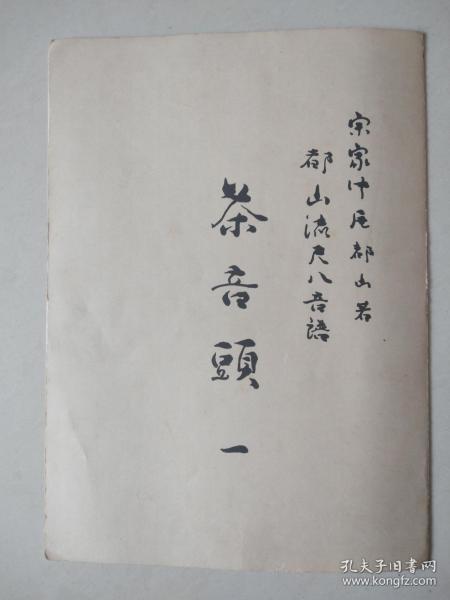 宗家中尾都山著
都山流尺八音譜
茶音頭 一
孔夫子旧书网
www.kongfz.com